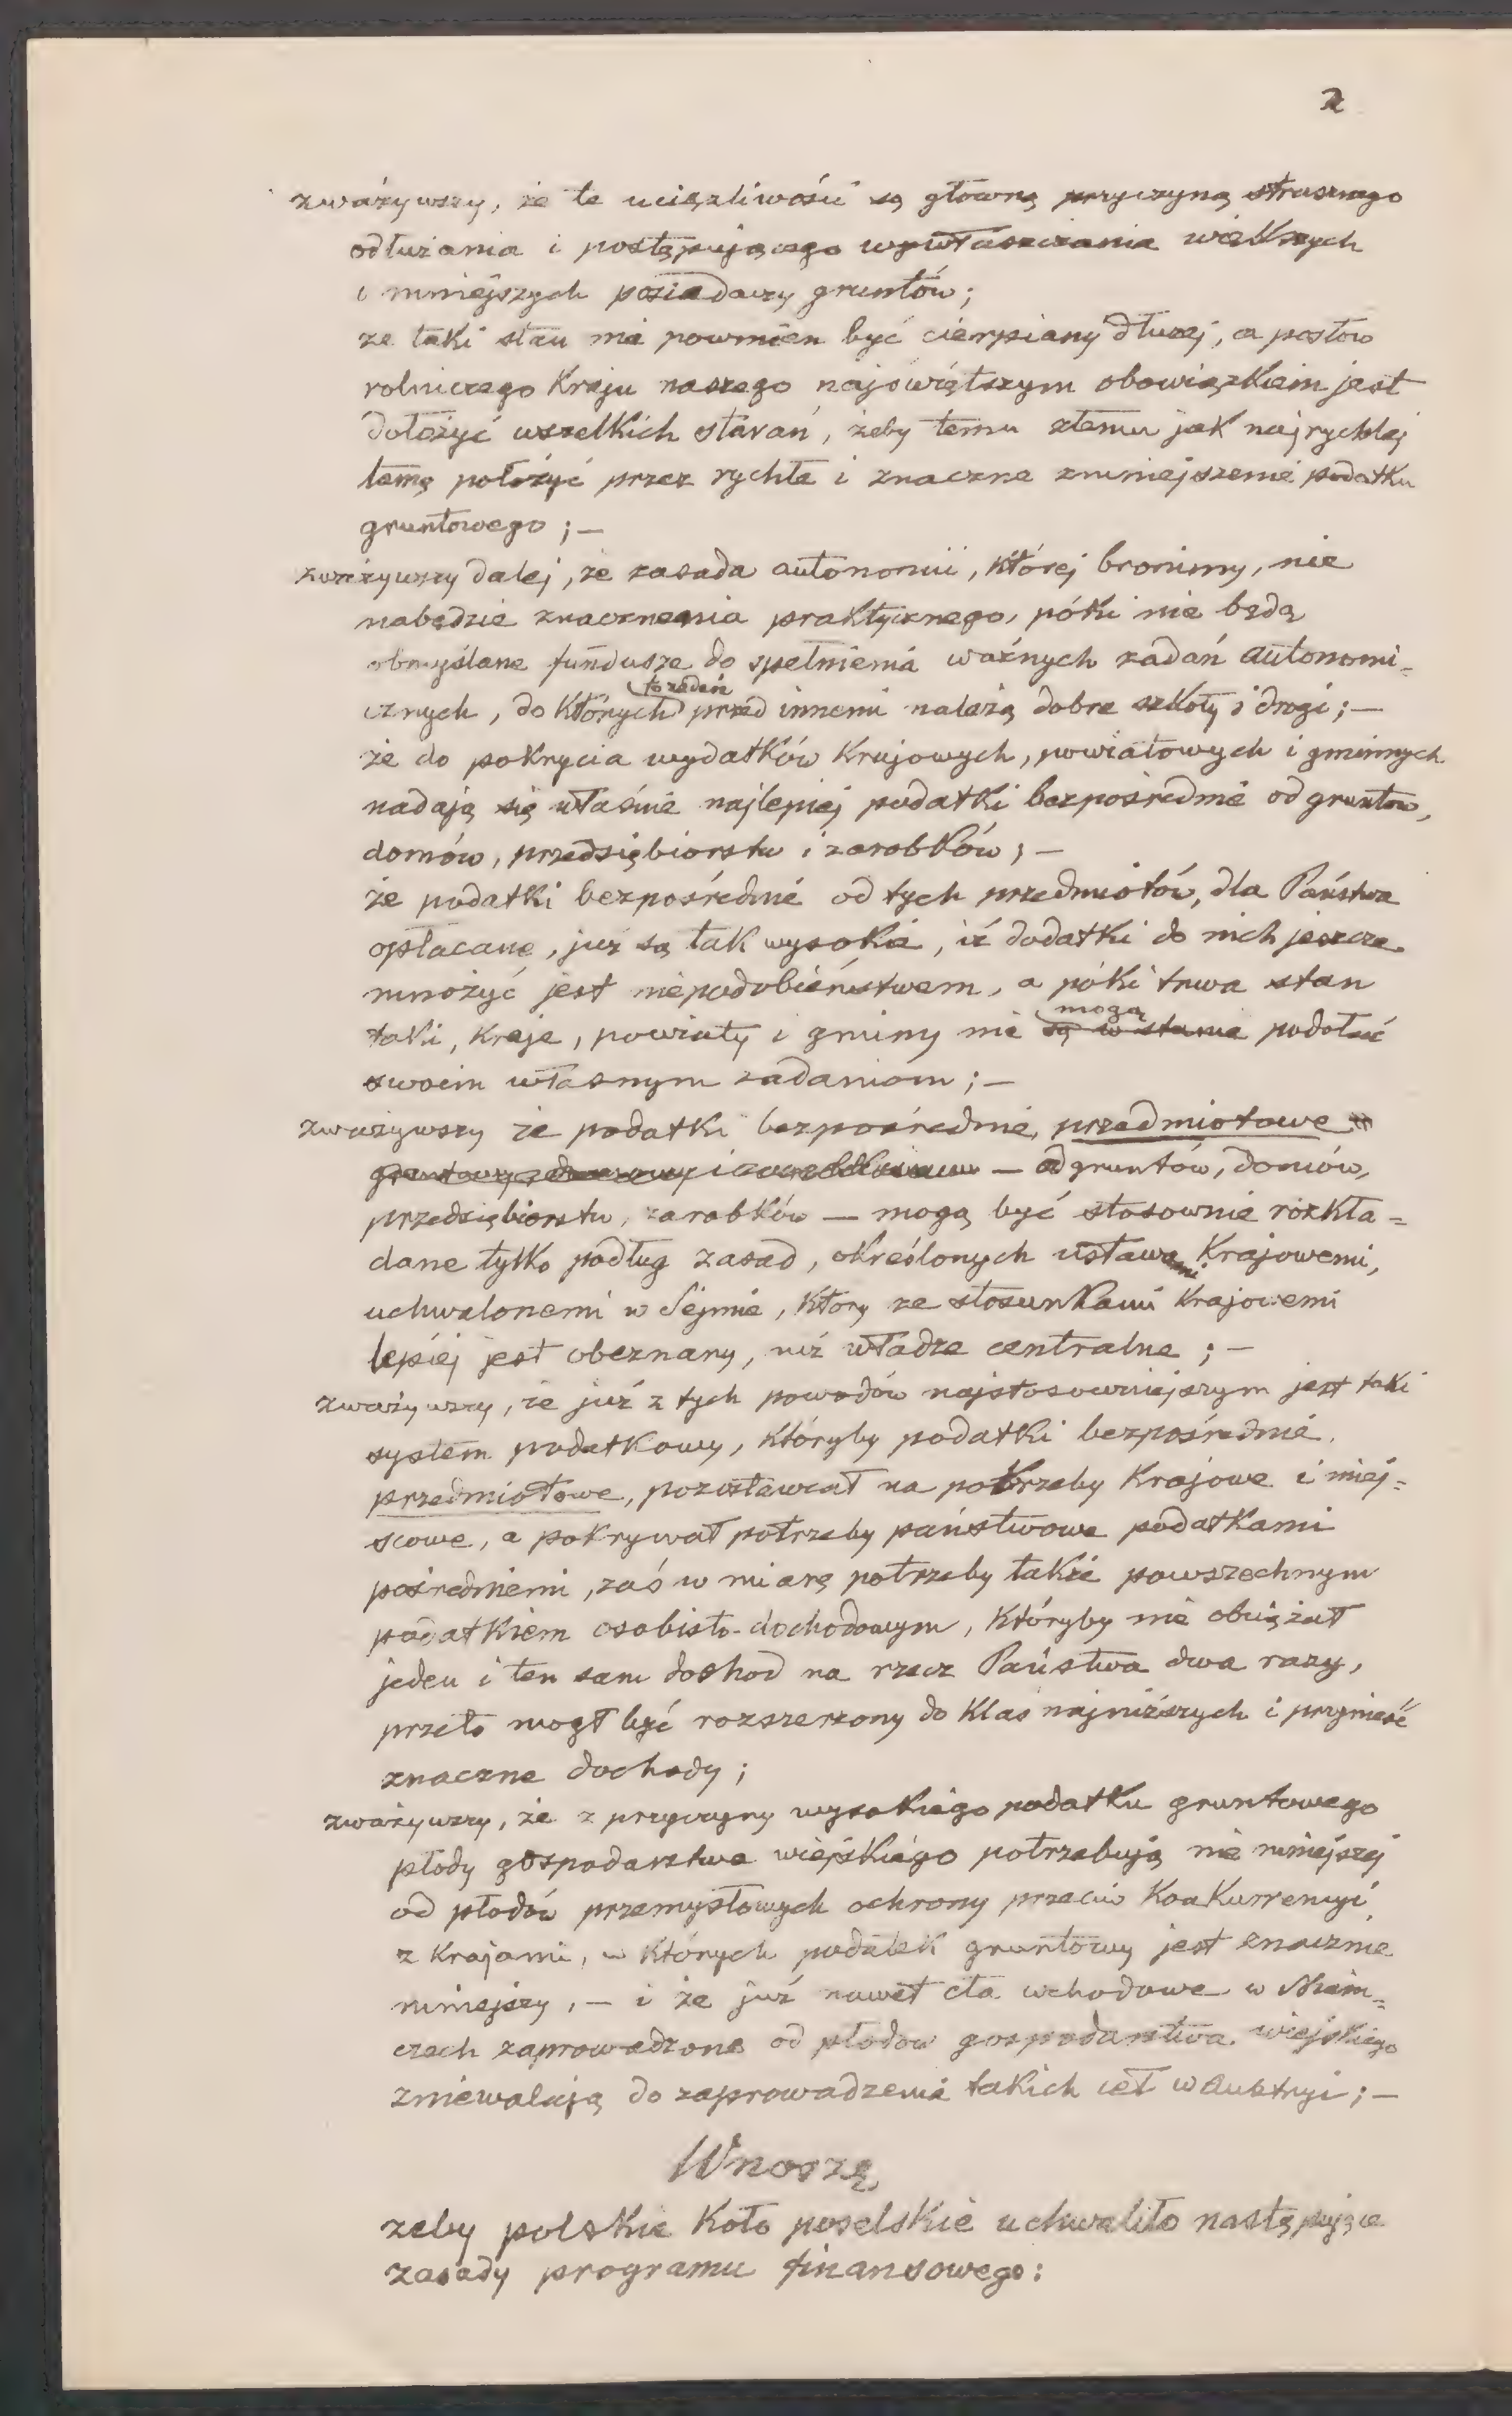 2
zważywszy, że te uciążliwości są główną przyczyną strasznego
odłużania i postępującego wywłaszczania większych
i mniejszych posiadaczy gruntów;
że taki stan nie powinien być cierpiany dłużej, a posłów
rolniczego Kraju naszego najświętszym obowiązkiem jest
dołożyć wszelkich starań, żeby temu złemu jak najrychlej
tamę położyć przez rychłe i znaczne zmniejszenie podatku
gruntowego; —
zważywszy dalej, że zasada autonomii, której bronimy, nie
nabędzie znaczenia praktycznego, póki nie będą
obmyślane fundusze do spełnienia ważnych zadań autonomi=
cznych, do Których to zadań przed innemi należą dobre szkoły i drogi; —
że do pokrycia wydatków Krajowych, powiatowych i gminnych
nadają się właśnie najlepiej podatki bezpośrednie od gruntów,
domów, przedsiębiorstw i zarobków; —
że podatki bezpośrednie od tych przedmiotów, dla Państwa
opłacane, już są tak wysokie, iż dodatki do nich jeszcze
mnożyć jest niepodobieństwem, a póki trwa stan
taki, Kraje, powiaty i gminy nie są w stanie mogą podołać
swoim własnym zadaniom; —
zważywszy że podatki bezpośrednie, przedmiotowe
— od gruntów, domów,
przedsiębiorstw, zarobków — mogą być stosownie rozkła=
dane tylko podług zasad, określonych ustawami Krajowemi,
uchwalonemi w Sejmie, Który ze stosunkami Krajowemi
lepiej jest obeznany, niż władze centralne; —
zważywszy, że już z tych powodów najstosowniejszym jest taki
system podatkowy, Któryby podatki bezpośrednie
przedmiotowe, pozostawiał na potrzeby Krajowe i miej=
scowe, a pokrywał potrzeby państwowe podatkami
pośredniemi, zaś w miarę potrzeby także powszechnym
podatkiem osobisto-dochodowym, Któryby nie obciążał
jeden i ten sam dochod na rzecz Państwa dwa razy,
przeto mogł być rozszerzony do Klas najniższych i przynieść
znaczne dochody;
zważywszy, że z przyczyny wysokiego podatku gruntowego
płody gospodarstwa wiejskiego potrzebują nie mniejszej
od płodów przemysłowych ochrony przeciw KonKurrencyi
z Krajami, w Których podatek gruntowy jest znacznie
mniejszy, — i że już nawet cła wchodowe w Niem=
czech zaprowadzone od płodow gospodarstwa wiejskiego
zniewalają do zaprowadzenia takich ceł w Austryi; —
Wnoszę
żeby polskie Koło poselskie uchwaliło następujące
zasady programu finansowego: